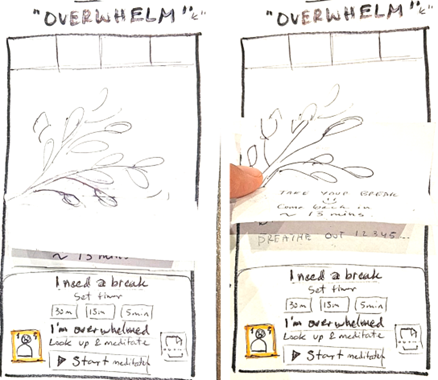 "OVERWHELM"
~ 15 mins
I need a break
Set timer
30m 15m 5min
I'm overwhelmed
Look up & meditate
Start meditate
"OVERWHELM"
TAKE YOUR BREAK
Come back in
~ 15 mins
BREATHE OUT 12345...
I need a break
Set timer
30m 15m 5min
I'm overwhelmed
Look up & meditate
Start meditate